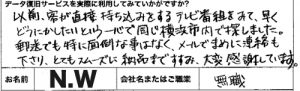 データ復旧サービスを実際に利用してみていかがですか?
以前、客が直接持ち込みをするテレビ番組をみて、早く
どうにかしたいという一心で同じ横浜市内で探しました。
郵送でも特に面倒な事はなく、メールでまめに連絡も
下さり、とてもスムーズに納品まですみ、大変感謝しています。
お名前 N.W 会社名またはご職業 無職